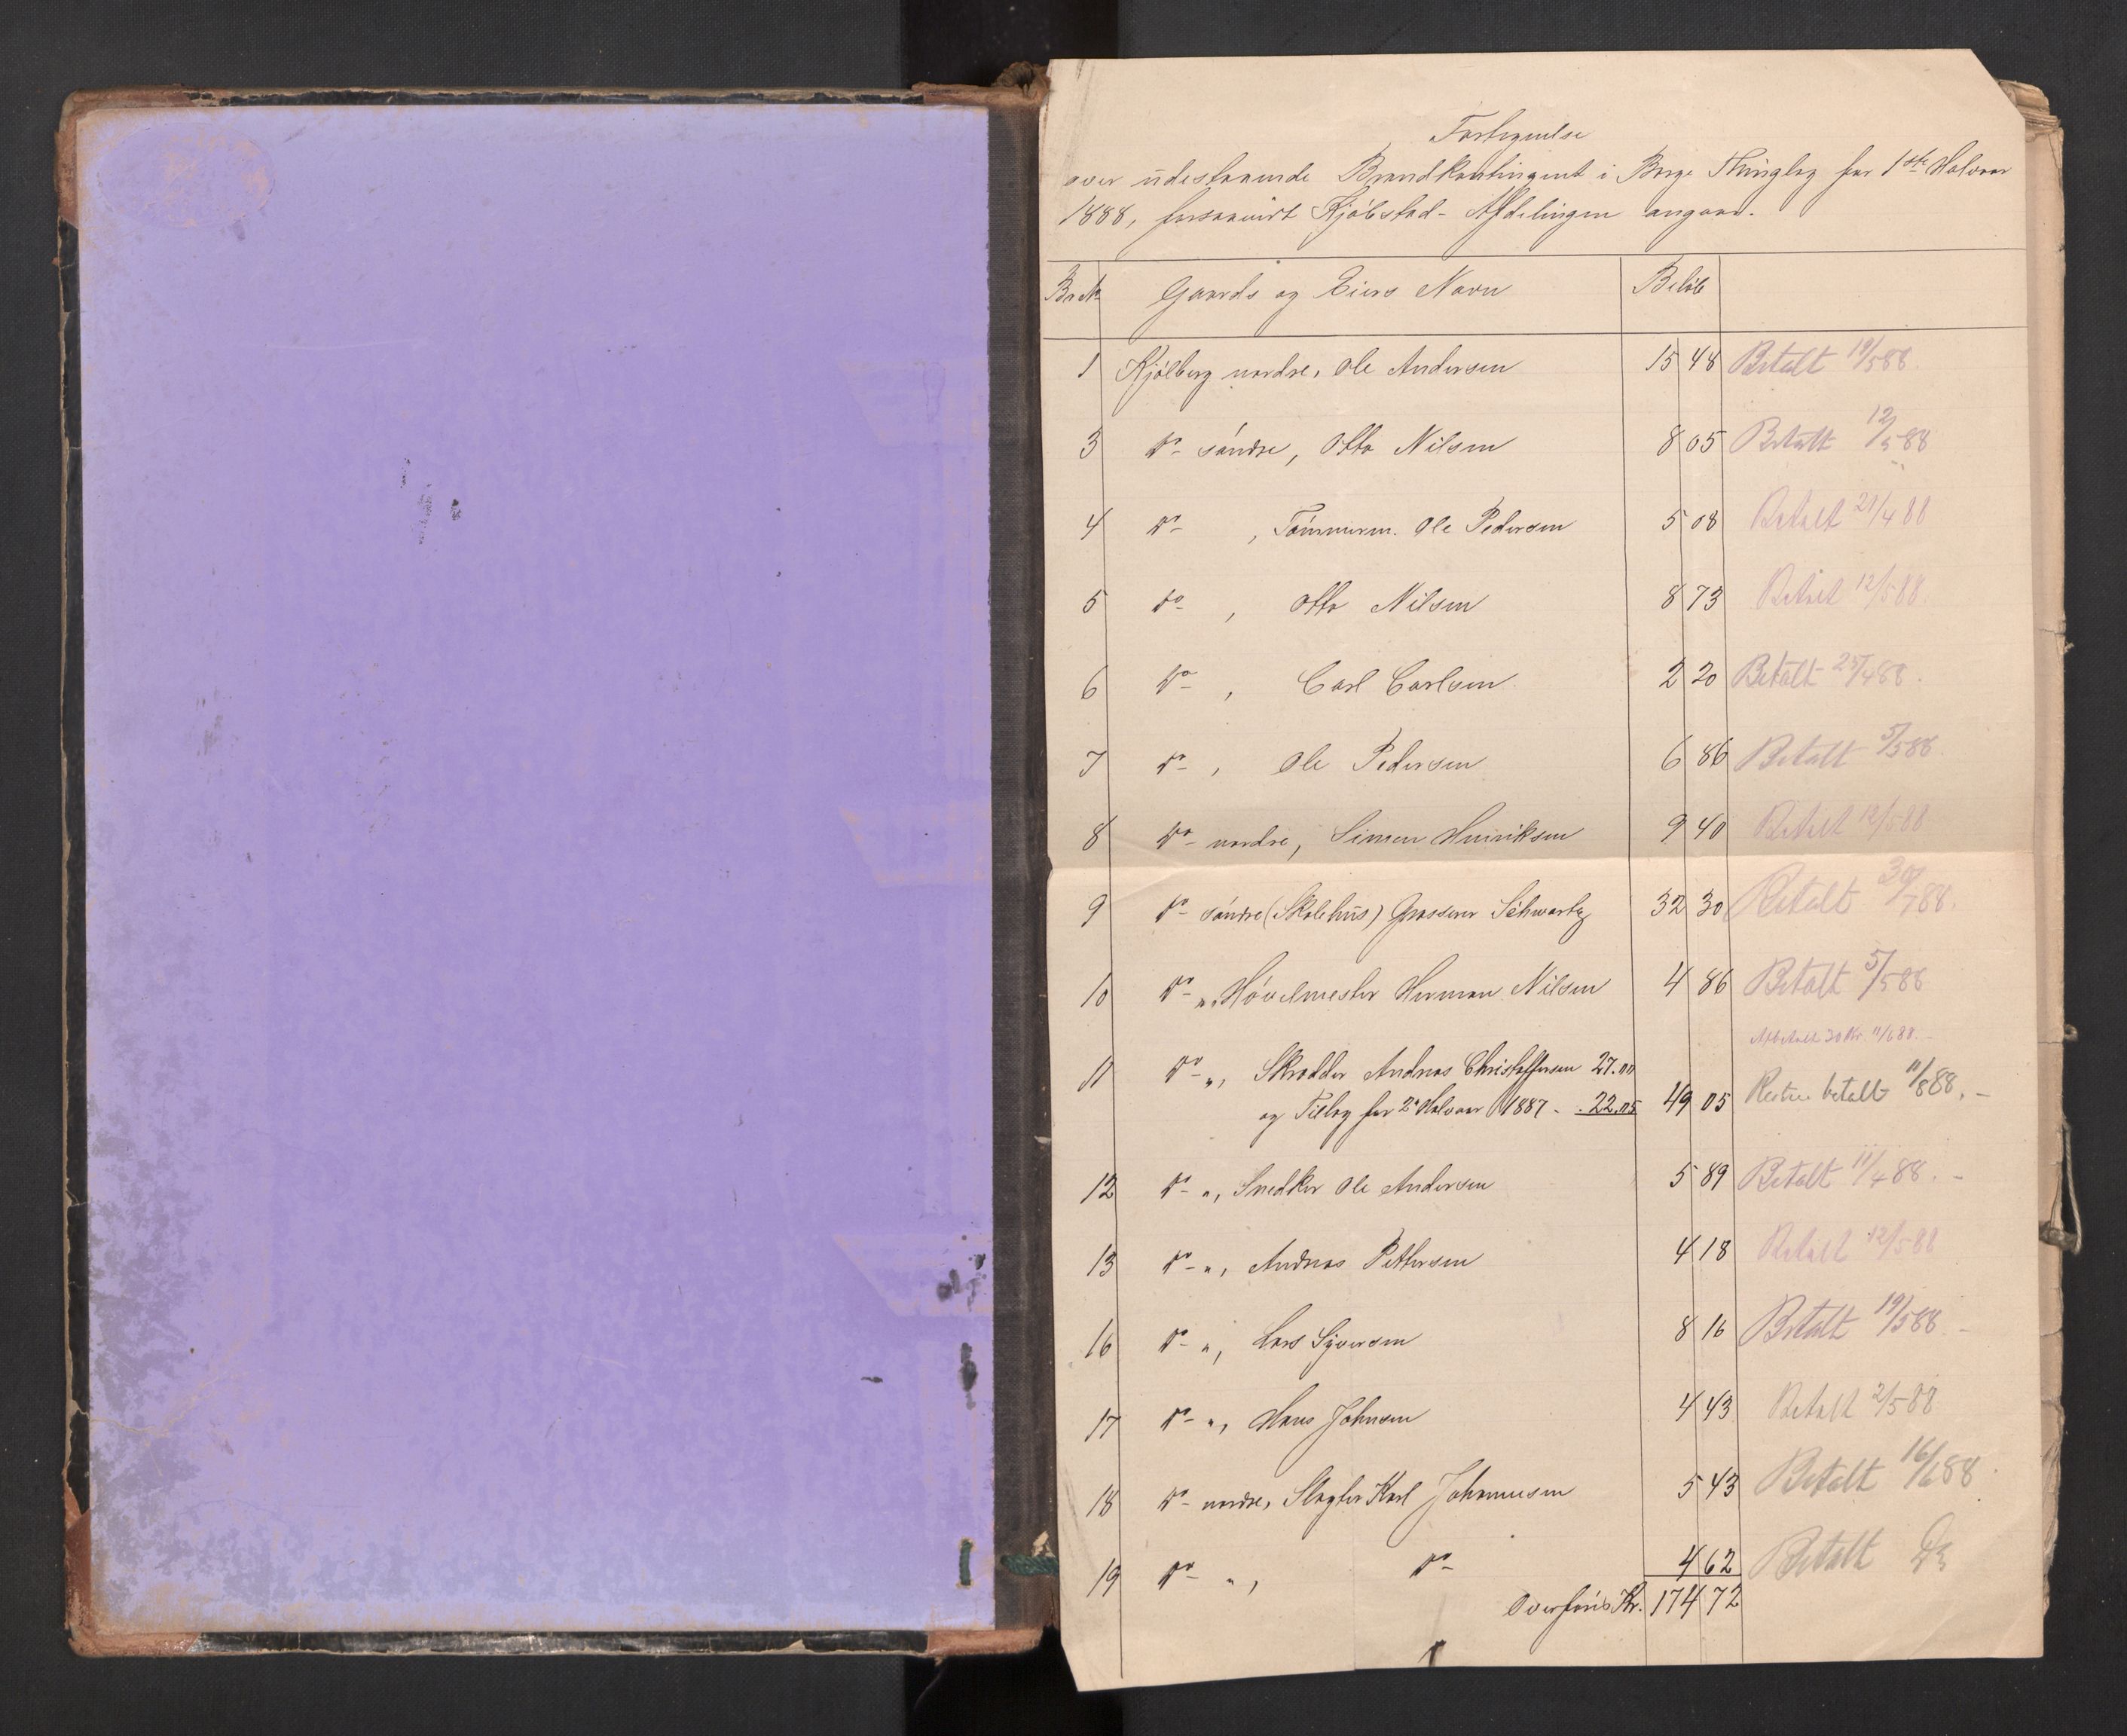 Fortegnelse
over udestaaende Brandkontingent i Borge Thinglag for 1ste Halvaar
1888, forsaavidt Kjøbstad-Afdelingen angaar.
Br. № Gaards og Eiers Navn Beløb
1 Kjølberg nordre, Ole Andersen 15 48 Betalt 19/5 88.
3 Do- søndre, Otto Nilsen 8 05 Betalt 12/5 88
4 Do- , Tømmerm. Ole Pedersen 5 08 Betalt 21/4 88
5 Do- , Otto Nilsen 8 73 Betalt 12/5 88.
6 Do- , Carl Carlsen 2 20 Betalt 25/4 88.
7 Do- , Ole Pedersen 6 86 Betalt 5/5 88.
8 Do- nordre, Simen Henriksen 9 40 Betalt 12/5 88
9 Do- søndre (Skolehus) Grosserer Schwartz 32 30 Betalt 30/7 88.
10 Do- „, Høvelmester Herman Nilsen 4 86 Betalt 5/5 88
Afbetalt 30 Kr. 11/6 88.-
11 Do- „, Skrædder Andreas Christoffersen 27.00
og Tillæg for 2' Halvaar 1887 - . 22.05 49 05 Resten betalt 11/8 88. -
12 Do- „, Snedker Ole Andersen 5 89 Betalt 11/4 88. -
13 Do- „, Andreas Pettersen 4 18 Betalt 12/5 88
16 Do- „, Lars Syversen 8 16 Betalt 19/5 88 -
17 Do- „, Hans Johnsen 4 43 Betalt 2/5 88
18 Do- nordre, Slagter Karl Johannesen 5 43 Betalt 16/6 88.
19 Do- „, Do- 4 62 Betalt Do
Overføres Kr. 174 72